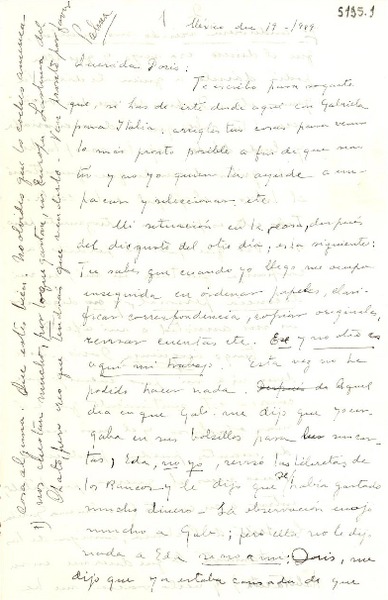 5195.1
1
México dic 19 - 1949
Palma
Querida Doris:
Te escribo para rogarte
que, si has de irte desde aquí con Gabriela
para Italia, arregles tus cosas para venir
lo más pronto posible a fin de que seas
tú y no yo quien la ayude a em-
pacar y seleccionar, etc.
Mi situación en la casa, después
del disgusto del otro día, es la siguiente:
Tu sabes que cuando yo llego me ocupo
enseguida en ordenar papeles, clasi-
ficar correspondencia, copiar originales,
revisar cuentas etc. Ese y no otro es
aquí mi trabajo. Esta vez no he
podido hacer nada. Después de aquel
día en que Gab. me dijo que yo car-
gaba en sus bolsillos para sus car-
tas, Eda, no yo, revisó las libretas de
los Bancos y le dijo que se había gastado
mucho dinero. La observación enojó
mucho a Gab.; pero ella no le dijo
nada a Eda sino a mi: Doris, me
dijo que ya estaba cansada de que
cosa alguna. Que estés bien. No olvides que los coches america-
nos cuestan mucho, por lo que gastan, en Europa. Lástima del
auto, pero creo que tendrías que venderlo. Ven pronto por favor